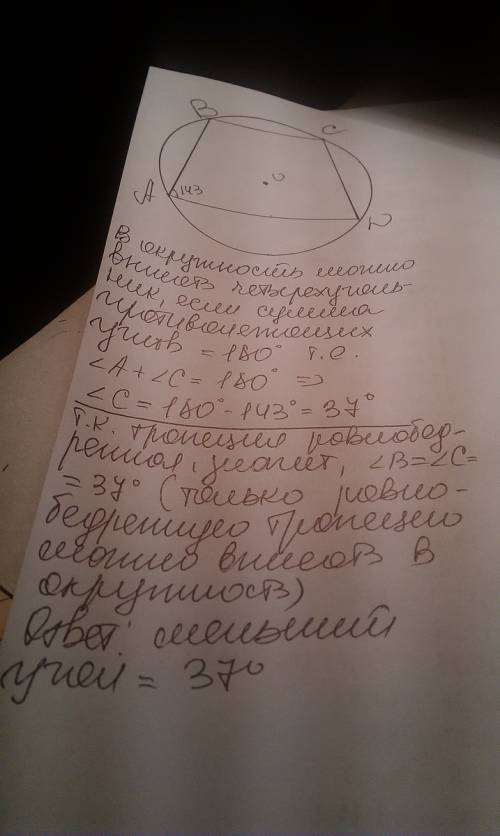 B
C
A 143
O
D
В окружность можно
вписать четырехуголь-
ник, если сумма
противолежащих
углов = 180° т.е.
∠A + ∠C = 180° =>
∠C = 180° - 143° = 37°
т.к. трапеция равнобед-
ренная, значит, ∠B = ∠C =
= 37° (только равно-
бедренную трапецию
можно вписать в
окружность)
Ответ: меньший
угол = 37°